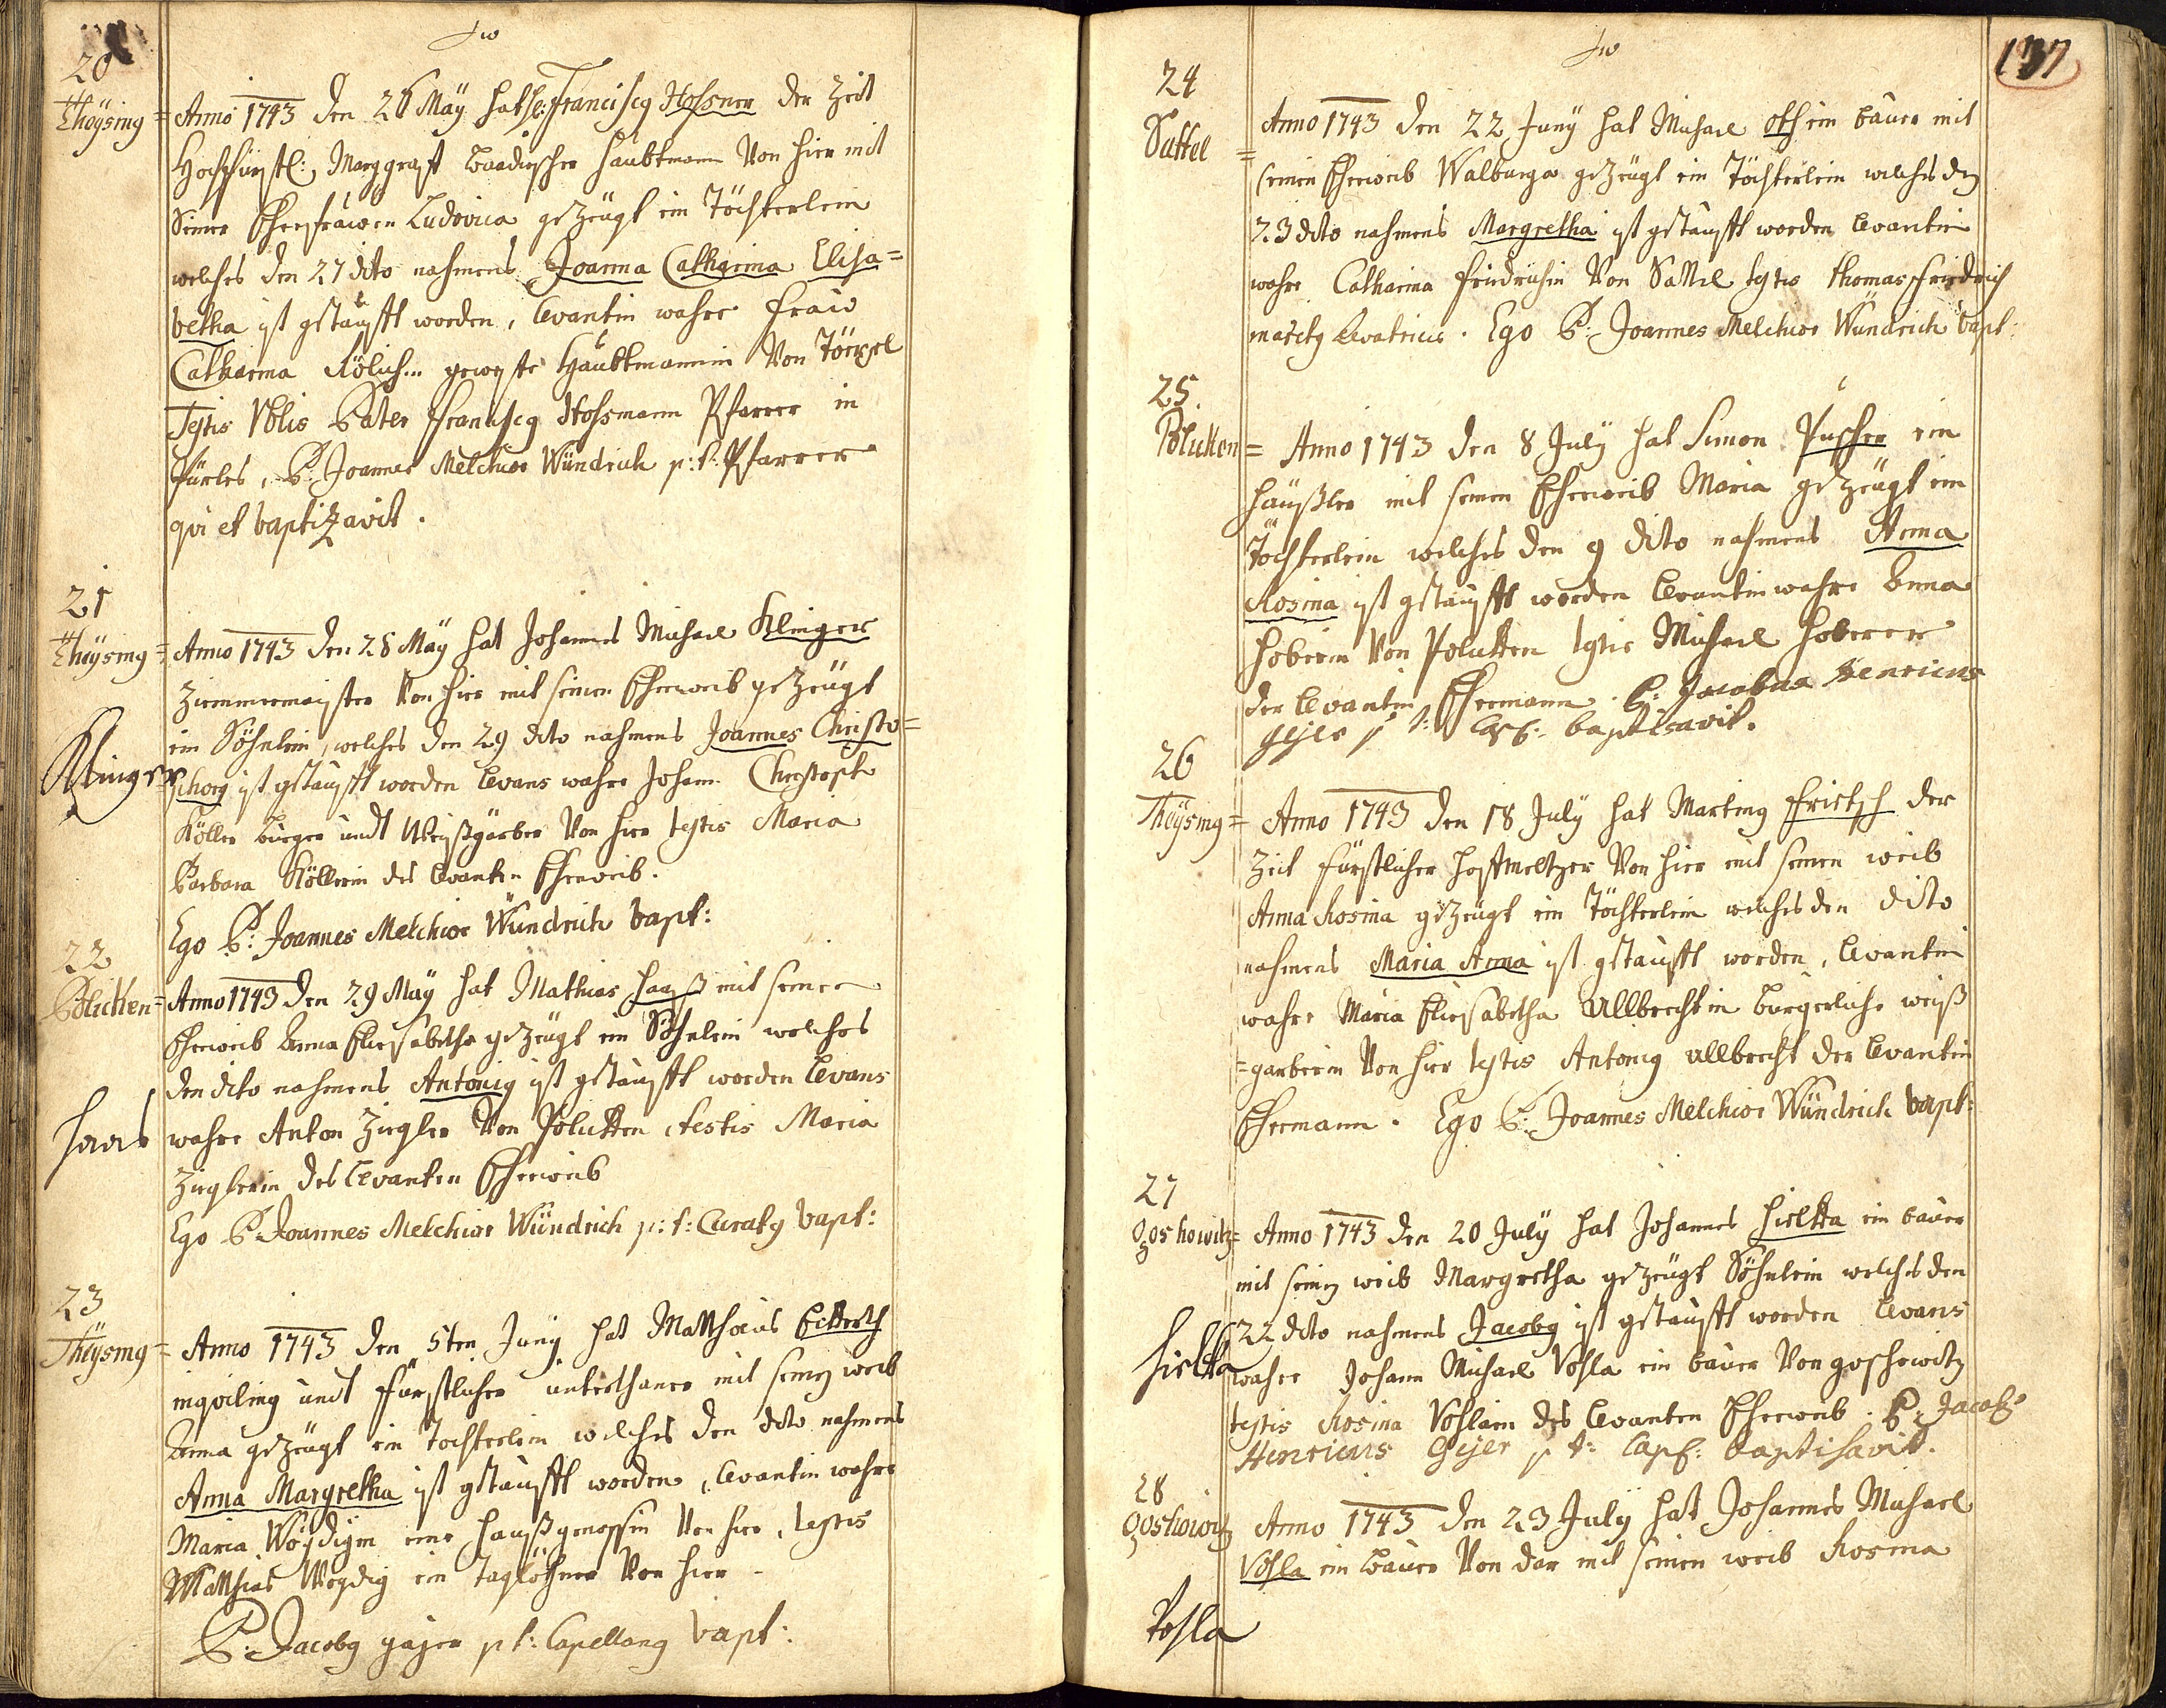 20
Theÿsing = Anno 1743 den 26 Maÿ hat H: Franciscg Hossner der Zeit
Hochfürstl: Marggraff Baadischer Haubtmann Von hier mit
Seiner Ehefrauen Ludovica gezeügt ein Töchterlein
welches den 27 dito nahmens Joanna Catharina Elisa=
betha ist getaufft worden, Levantin wahre Frau
Catharina gewesste Haubtmannin Von
Testis Pater Franciscg Hossmann Pfarrer in
P: Joannes Melchior Wündrich p: t: Pfarrer
qui et baptizavit.
21
Theÿsing = Anno 1743 den 28 Maÿ hat Johannes Michael Klinger
Zimmermeister Von hier mit seinen Eheweib gezeügt
ein Söhnlein, welches den 29 dito nahmens Joannes Christo=
Klinger
phorg ist getaufft worden Levans wahre Johann Christoph
Köller burger undt Weißgärber Von hier testis Maria
Barbara Köllerin des Levanten Eheweib.
Ego P: Joannes Melchior Wündrich bapt:
22
Polikken = Anno 1743 den 29 May hat Mathias Haaß mit seinen
Eheweib Anna Eliesabetha gezeügt ein Söhnlein welches
den dito nahmens Antonig ist getaufft worden Levans
Haas
wahre Anton Ziegler Von Polikken, testis Maria
Zieglerin des Levanten Eheweib
Ego P: Joannes Melchior Wündrich p: t: Curatg bapt:
23
Theÿsing = Anno 1743 den 5ten Junÿ hat Matthaeus Eckerth
inqviling undt Fürstlicher unterthaner mit seinen weib
Anna gezeügt ein Tochterlein welches den dito nahmens
Anna Margretha ist getaufft worden, Levantin wahre
Maria Woÿdigin eine Haußgenossin Von hier, testis
Matthias Weydig ein taglöhner Von hier
P: Jacobg gajer p t: Capellang bapt:
137
24
Sattel = Anno 1743 den 22 Junÿ hat Michael Oth ein bauer mit
seinen Eheweib Walburga gezeügt ein Töchterlein welches den
23 dito nahmens Margretha ist getaufft worden Levantin
wahre Catharina Friedrichin Von Sattel testis Thomas Friedrich
maritg Levatricis. Ego P: Joannes Melchior Wündrich bapt:
25.
Polikken = Anno 1743 den 8 Julÿ hat Simon Puscher ein
Häußler mit seinen Eheweib Maria gezeügt ein
Töchterlein welches den 9 dito nahmens Anna
Rosina ist getaufft worden Levantin wahre Anna
Hoberin Von Polikken testis Michael Hoberer
der Levantin Ehemann. P: Jacobus Henricus
Gejer p t: Cap: baptisavit.
26
Theÿsing = Anno 1743 den 18 Julÿ hat Marting Frietsch der
Zeit Fürstlicher Hoffmeltzer Von hier mit seinen weib
Anna Rosina gezeügt ein Töchterlein welches den dito
nahmens Maria Anna ist getaufft worden, Levantin
wahre Maria Eliesabetha Ullbrechtin bürgerliche weiß
=garberin Von hier testis Antonig Ullbrecht der Levantin
Ehemann. Ego P: Joannes Melchior Wündrich bapt:
27
Goshowitz = Anno 1743 den 20 Julÿ hat Johannes Hieltka ein bauer
mit seinen weib Margretha gezeügt Söhnlein welches den
22 dito nahmens Jacobg ist getaufft worden Levans
Hieltka
wahre Johann Michael Vohla ein bauer Von goschowitz
testis Rosina Vohlain des Levanten Eheweib. P: Jacob
Henricus Gejer p t: Cap: baptisavit.
28
Goshowitz Anno 1743 den 23 Julÿ hat Johannes Michael
Vohla ein Bauer Von dar mit seinen weib Rosina
Vohla